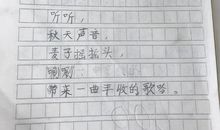 听听，
秋天声音，
麦子摇摇头，
唰唰，
带来一曲丰收的歌吟。